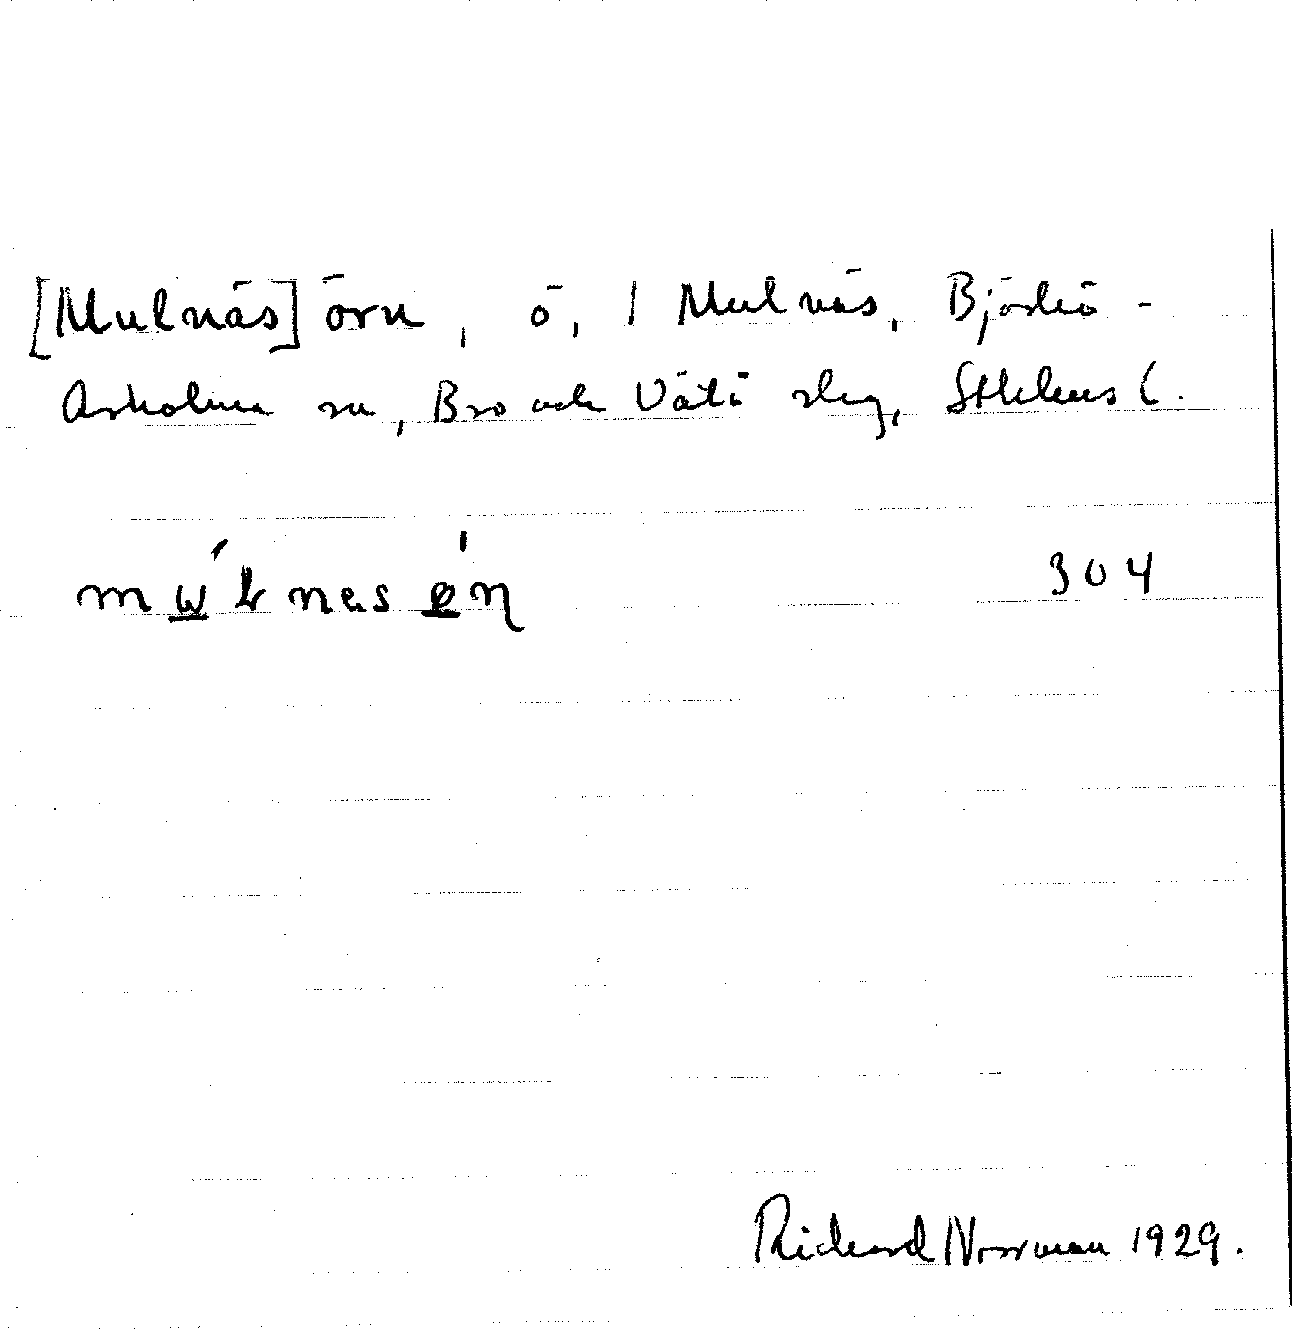 [Mulnäs]örn, ö, 1 Mulnäs, Björkö-
Arholma sn, Bro och Vätö slg, Sthlms l.
304
Richard Norrman 1929.